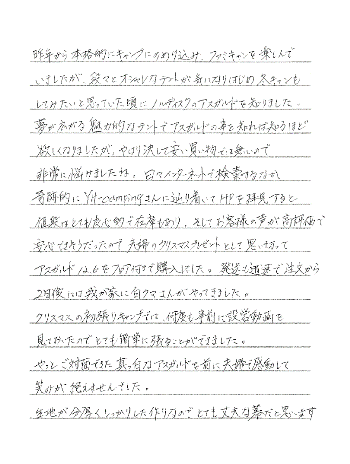 昨年から本格的にキャンプにのめり込み、ファミキャンを楽しんで
いましたが、段々とオシャレなテントが気になりはじめ冬キャンも
してみたいと思っていた頃にノルディスクのアスガルドを知りました。
夢が広がる魅力的なテントでアスガルドの事を知れば知るほど
欲しくなりましたが、やはり決して安い買い物では無いので
非常に悩みましたね。日々インターネットで検索するなか、
奇跡的に さんに辿り着いてHPを拝見すると
値段はとても良心的で在庫もあり、そしてお客様の声が高評価で
安心できそうだったので夫婦のクリスマスプレゼントとして思い切って
アスガルド12.6をフロア付きで購入でした。発送も迅速で注文から
2日後には我が家に白クマさんがやってきました。
クリスマスの初張りキャンプでは、何度も事前に設営動画を
見ておいたのでとても簡単に張ることができました。
やっとご対面できた真っ白なアスガルドを前に夫婦で感動して
笑みが絶えませんでした。
生地が分厚くしっかりした作りなのでとても丈夫な幕だと思います